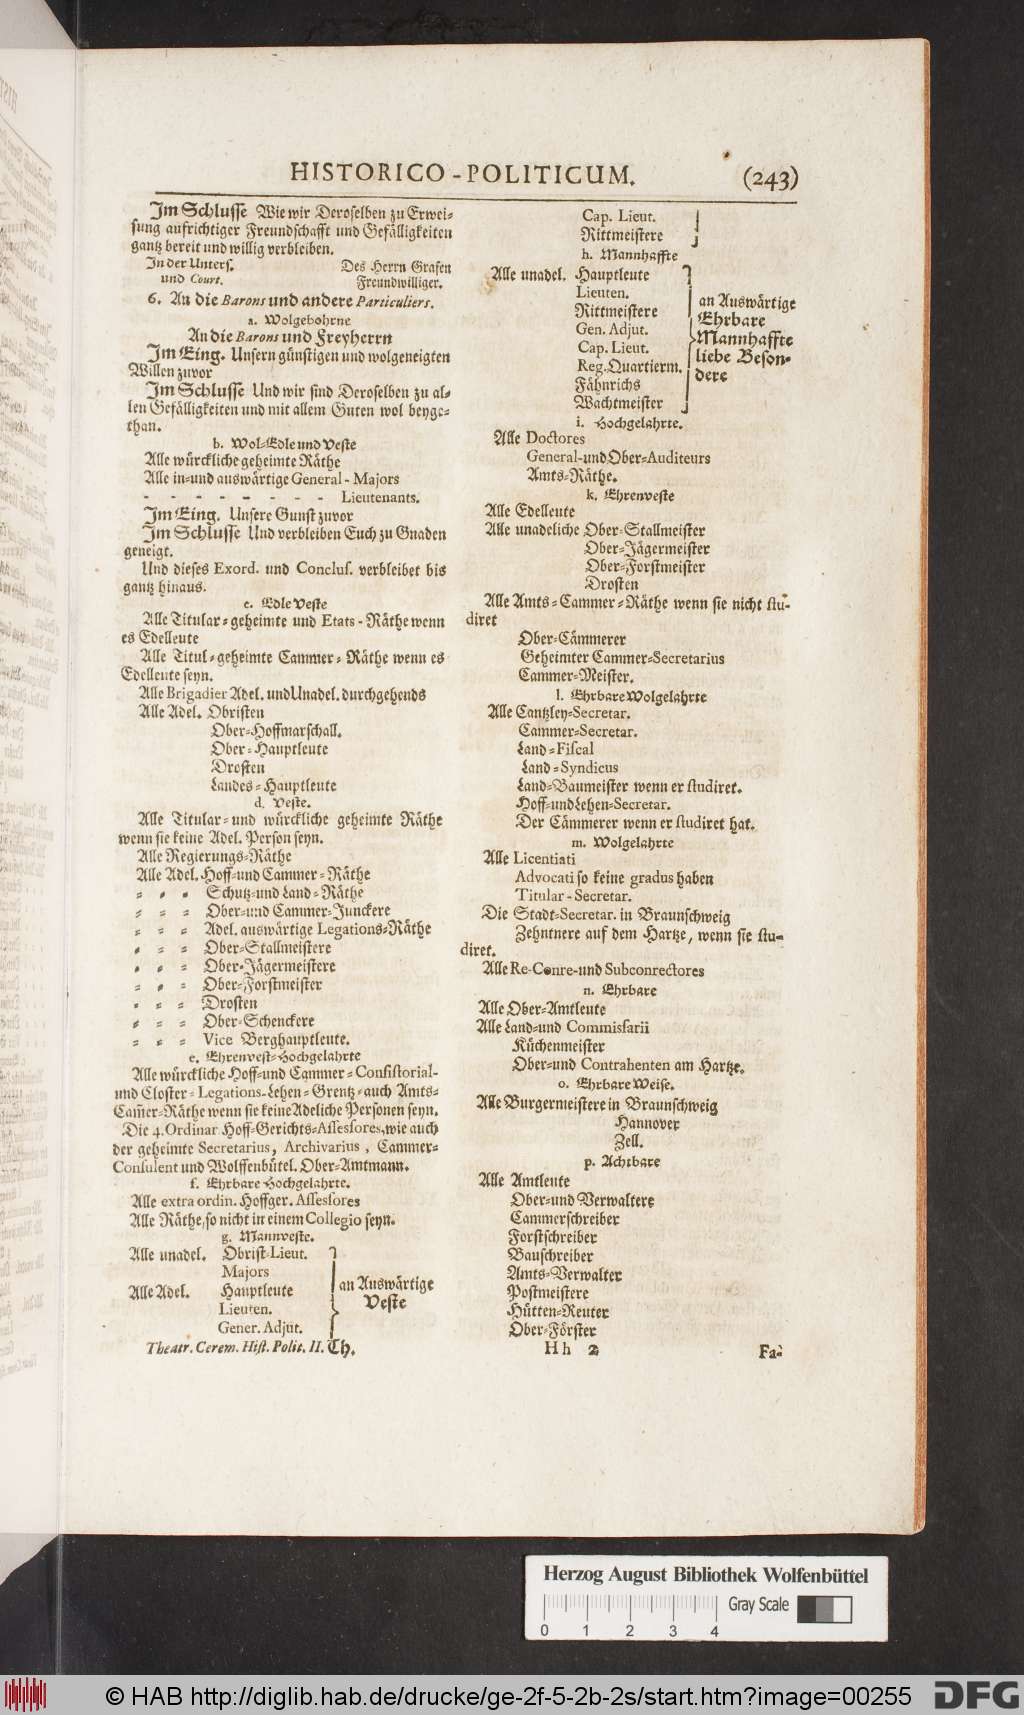 HISTORICO-POLITICUM. (243)
Im Schlusse Wie wir Deroselben zu Erwei-
sung aufrichtiger Freundschafft und Gefälligkeiten
gantz bereit und willig verbleiben.
In der Unters. Des Herrn Grafen
und Court. Freundwilliger.
6. An die Barons und andere Particuliers.
a. Wolgebohrne
An die Barons und Freyherrn
Im Eing. Unsern günstigen und wolgeneigten
Willen zuvor
Im Schlusse Und wir sind Deroselben zu al-
len Gefälligkeiten und mit allem Guten wol beyge-
than.
b. Wol-Edle und Veste
Alle würckliche geheimte Räthe
Alle in-und auswärtige General-Majors
- - - - - - - - Lieutenants.
Im Eing. Unsere Gunst zuvor
Im Schlusse Und verbleiben Euch zu Gnaden
geneigt.
Und dieses Exord. und Conclus. verbleibet bis
gantz hinaus.
c. Edle Veste
Alle Titular-geheimte und Etats-Räthe wenn
es Edelleute
Alle Titul-geheimte Cammer-Räthe wenn es
Edelleute seyn.
Alle Brigadier Adel. und Unadel. durchgehends
Alle Adel. Obristen
Ober-Hoffmarschall.
Ober-Hauptleute
Drosten
Landes-Hauptleute
d. Veste.
Alle Titular-und würckliche geheimte Räthe
wenn sie keine Adel. Person seyn.
Alle Regierungs-Räthe
Alle Adel. Hoff-und Cammer-Räthe
- - - Schutz-und Land-Räthe
- - - Ober-und Cammer-Junckere
- - - Adel. auswärtige Legations-Räthe
- - - Ober-Stallmeistere
- - - Ober-Jägermeistere
- - - Ober-Forstmeister
- - - Drosten
- - - Ober-Schenckere
- - - Vice Berghauptleute.
e. Ehrenvest-Hochgelahrte
Alle würckliche Hoff-und Cammer-Consistorial-
und Closter-Legations-Lehen-Grentz-auch Amts-
Cam̃er-Räthe wenn sie keine Adeliche Personen seyn.
Die 4. Ordinar Hoff-Gerichts-Assessores, wie auch
der geheimte Secretarius, Archivarius, Cammer-
Consulent und Wolffenbütel. Ober-Amtmann.
f. Ehrbare Hochgelahrte.
Alle extra ordin. Hoffger. Assessores
Alle Räthe, so nicht in einem Collegio seyn.
g. Mannveste.
Alle unadel. Obrist-Lieut.
Majors
Alle Adel. Hauptleute
Lieuten.
Gener. Adjut.
an Auswärtige
Veste
Theatr. Cerem. Hist. Polit. II. Th.
Cap. Lieut.
Rittmeistere
h. Mannhaffte
Alle unadel. Hauptleute
Lieuten.
Rittmeistere
Gen. Adjut.
Cap. Lieut.
Reg. Quartierm.
Fähnrichs
Wachtmeister
an Auswärtige
Ehrbare
Mannhaffte
liebe Beson-
dere
i. Hochgelahrte.
Alle Doctores
General-und Ober-Auditeurs
Amts-Räthe.
k. Ehrenveste
Alle Edelleute
Alle unadeliche Ober-Stallmeister
Ober-Jägermeister
Ober-Forstmeister
Drosten
Alle Amts-Cammer-Räthe wenn sie nicht stu-
diret
Ober-Cämmerer
Geheimter Cammer-Secretarius
Cammer-Meister.
l. Ehrbare Wolgelahrte
Alle Cantzley-Secretar.
Cammer-Secretar.
Land-Fiscal
Land-Syndicus
Land-Baumeister wenn er studiret.
Hoff-und Lehen-Secretar.
Der Cämmerer wenn er studiret hat.
m. Wolgelahrte
Alle Licentiati
Advocati so keine gradus haben
Titular-Secretar.
Die Stadt-Secretar. in Braunschweig
Zehntnere auf dem Hartze, wenn sie stu-
diret.
Alle Re-Conre-und Subconrectores
n. Ehrbare
Alle Ober-Amtleute
Alle Land-und Commissarii
Küchenmeister
Ober-und Contrahenten am Hartze.
o. Ehrbare Weise.
Alle Burgermeistere in Braunschweig
Hannover
Zell.
p. Achtbare
Alle Amtleute
Ober-und Verwaltere
Cammerschreiber
Forstschreiber
Bauschreiber
Amts-Verwalter
Postmeistere
Hütten-Reuter
Ober-Förster
Hh 2 Fa-
Herzog August Bibliothek Wolfenbüttel
Gray Scale
0 1 2 3 4
© HAB http://diglib.hab.de/drucke/ge-2f-5-2b-2s/start.htm?image=00255 DFG